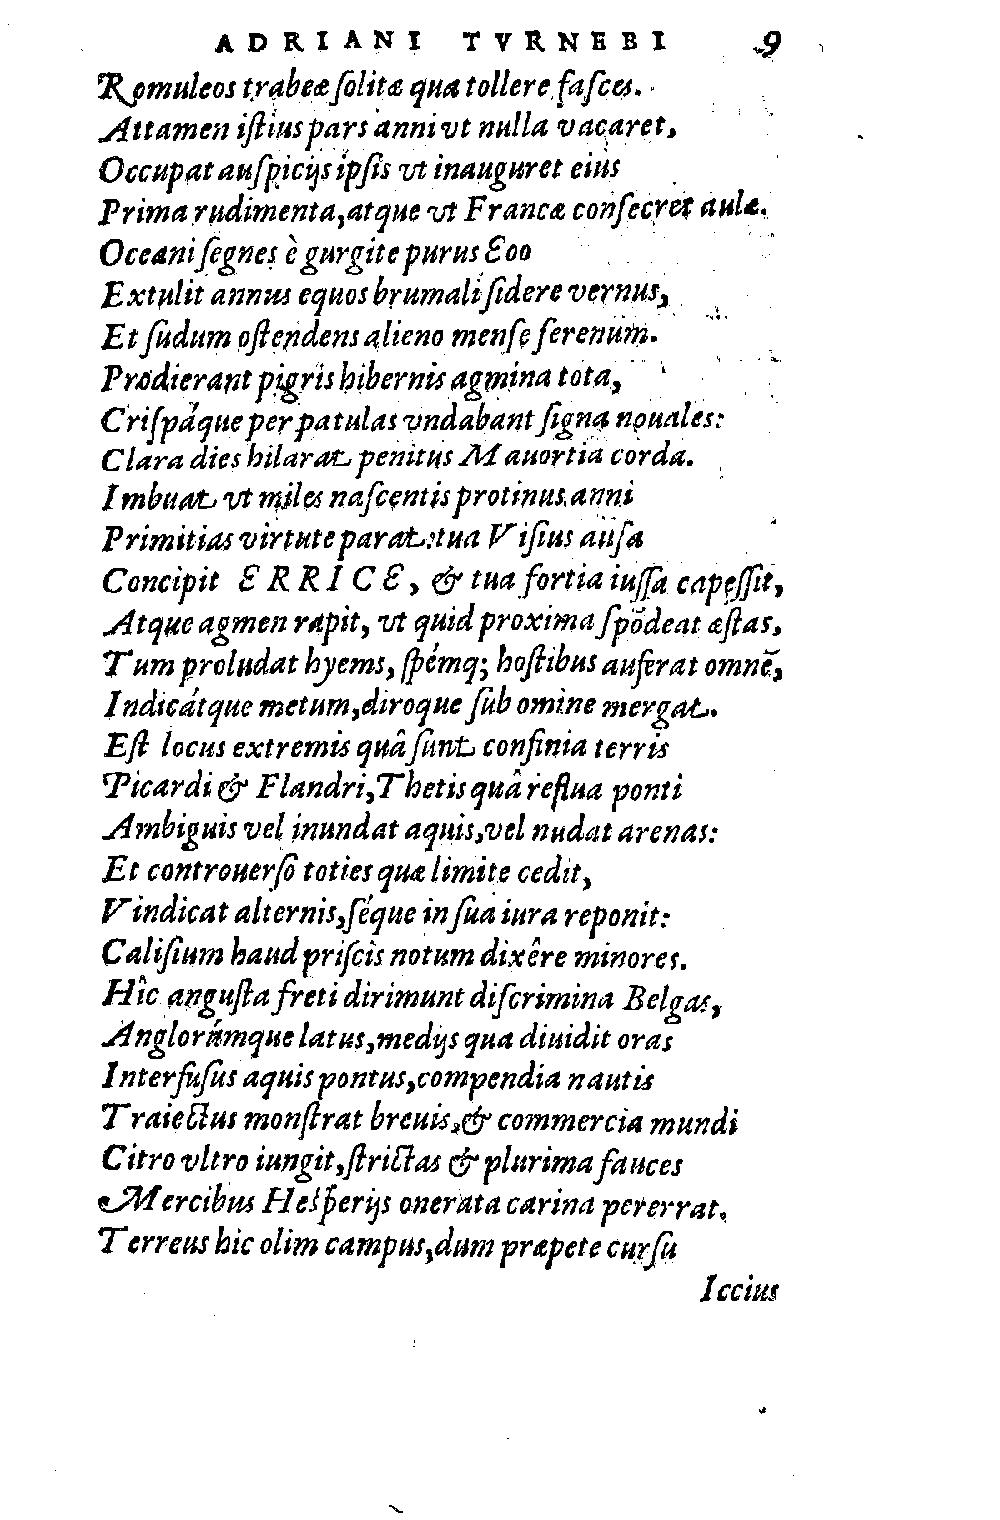 ADRIANI TVRNEBI 9
Romuleos trabeæ ſolitæ qua tollere faſces.
Attamen iſtius pars anni vt nulla vacaret,
Occupat auſpicijs ipſis vt inauguret eius
Prima rudimenta, atque vt Francæ conſecret aulæ.
Oceani ſegnes è gurgite purus Eoo
Extulit annus equos brumali ſidere vernus,
Et ſudum oſtendens alieno menſe ſerenum.
Prodierant pigris hibernis agmina tota,
Criſpáque per patulas vndabant ſigna nouales:
Clara dies hilarat penitus Mauortia corda.
Imbuat vt miles naſcentis protinus anni
Primitias virtute parat: tua Viſius auſa
Concipit ERRICE, & tua fortia iuſſa capeſſit,
Atque agmen rapit, vt quid proxima ſpōdeat æſtas,
Tum proludat hyems, ſpémq; hoſtibus auferat omnē,
Indicátque metum, diroque ſub omine mergat.
Eſt locus extremis quâ ſunt confinia terris
Picardi & Flandri, Thetis quâ reflua ponti
Ambiguis vel inundat aquis, vel nudat arenas:
Et controuerſo toties quæ limite cedit,
Vindicat alternis, ſéque in ſua iura reponit:
Caliſium haud priſcis notum dixêre minores.
Hîc anguſta freti dirimunt diſcrimina Belgas,
Anglorúmque latus, medijs qua diuidit oras
Interfuſus aquis pontus, compendia nautis
Traiectus monſtrat breuis, & commercia mundi
Citro vltro iungit, ſtrictas & plurima fauces
Mercibus Heſperijs onerata carina pererrat.
Terreus hic olim campus, dum præpete curſu
Iccius